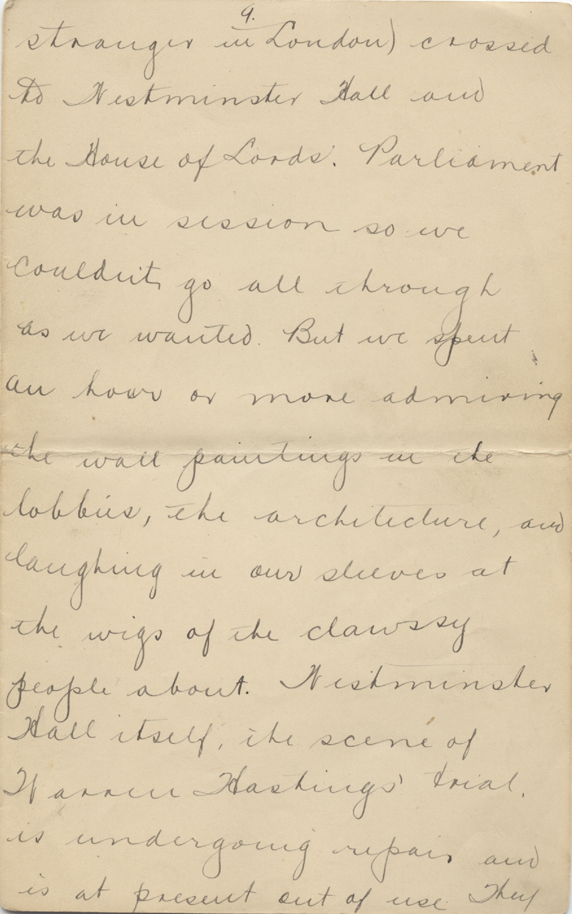 9.
stranger in London) crossed
to Westminster Hall and
the House of Lords. Parliament
was in session so we
couldn't go all through
as we wanted. But we spent
an hour or more admiring
the wall paintings in the
lobbies, the architecture, and
laughing in our sleeves at
the wigs of the clawssy
people about. Westminster
Hall itself, the scene of
Warren Hastings' trial,
is undergoing repair and
is at present out of use They